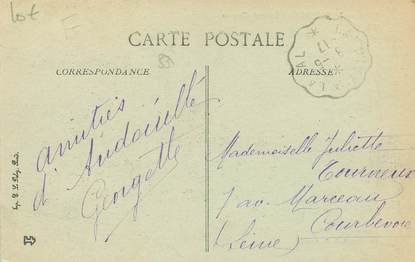 lot
CARTE POSTALE
CORRESPONDANCE
ADRESSE
amitiés
d'Andouillé
Georgette
Mademoiselle Juliette
Tourneux
7 av. Marceau
Courbevoie
(Seine)